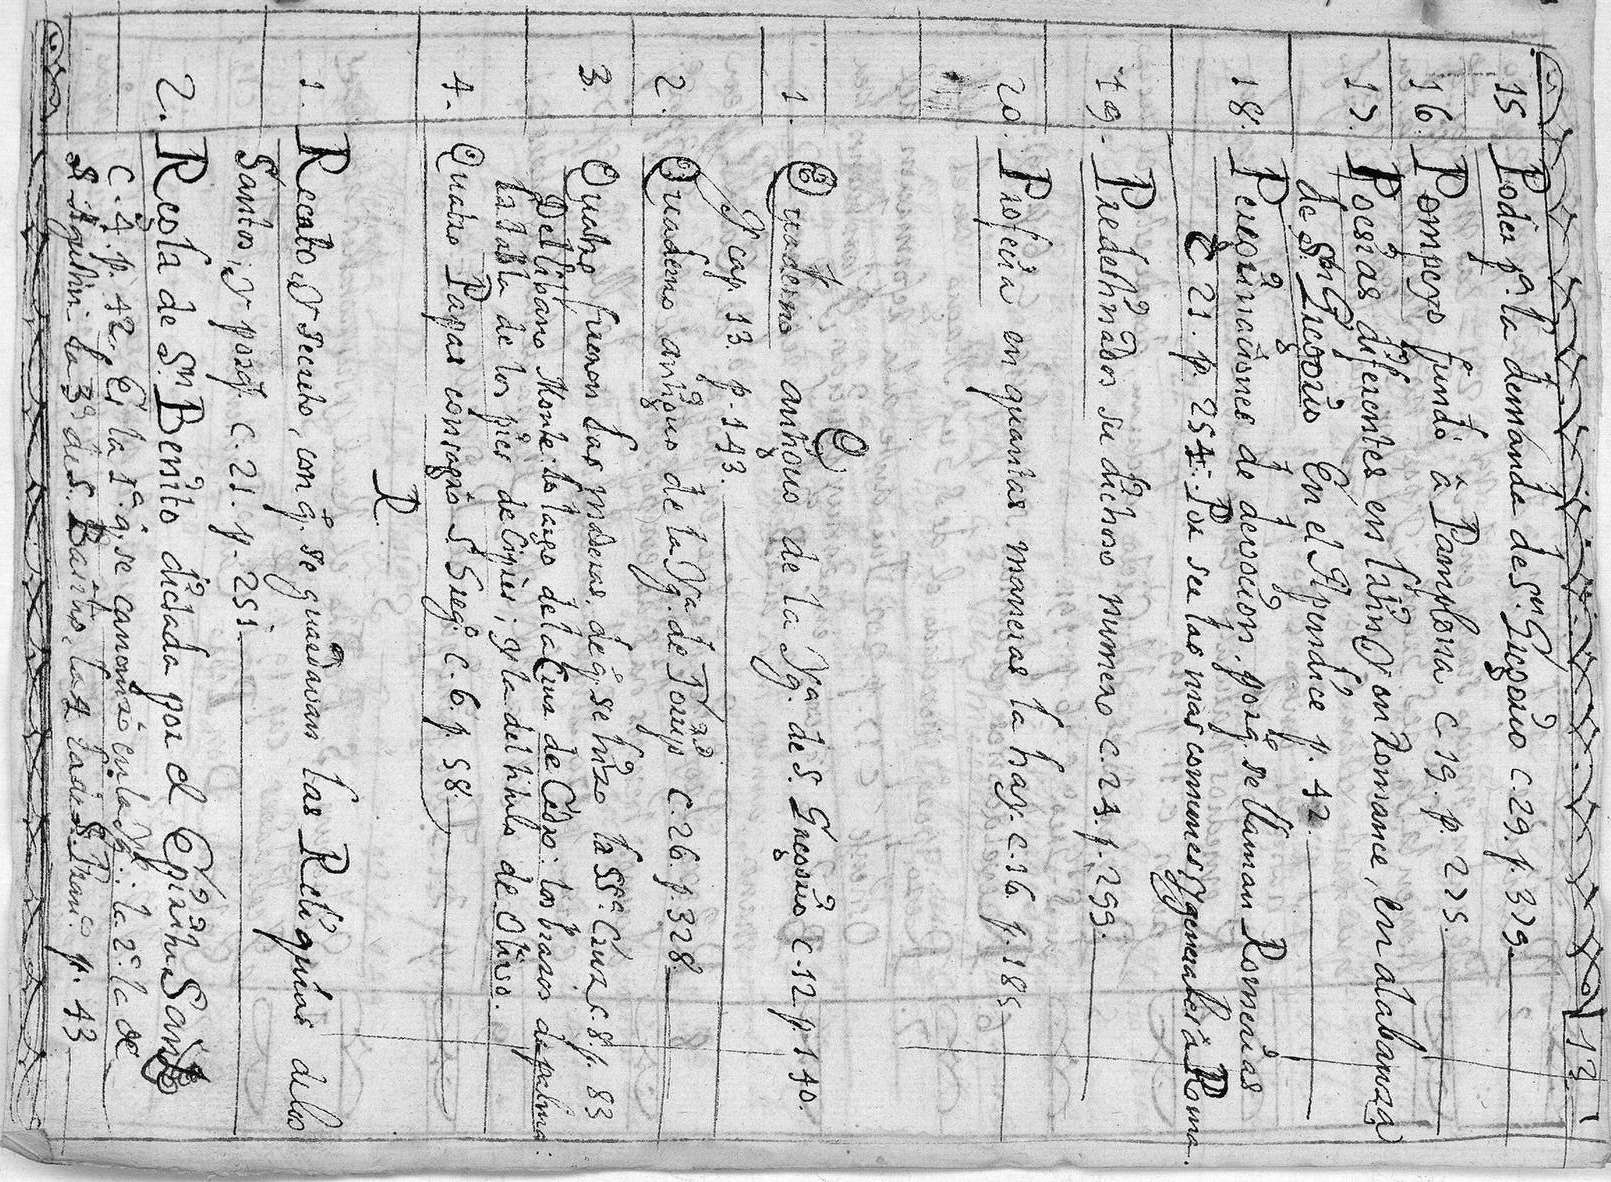 13
15. Poder pª. la demanda de Sn. Gregorio c. 29. p. 379.
16. Pompeyo fundò â Pamplona c. 19. p. 275.
17. Poesias diferentes en latin y en Romance, en alabanza
de Sn. Gregorio En el Apendice p. 42.
18. Peregrinaciones de devocion, porq. se llaman Romerias
C 21. p. 254. Por ser las mas comunes y generales â Roma.
19. Predestinados su dichoso numero c. 24. p. 299.
20. Profecia en quantas maneras la hay. c. 16. p. 185
Q
1. Quaderno antiguo de la Yg.ª de S. Gregorio c. 12 p. 140.
Y cap. 13. p. 143.
2. Quaderno antiguo de la Yg.ª de c. 26. p. 328
3. Quatro fueron las maderas, de q. se hizo la SS.ma Cruz c. 8. p. 83
Del libano Monte: lo largo de la Cruz de Cedro: los brazos de palma:
la tabla de los pies de Cipres; y la del titulo de Olivo.
4. Quatro Papas consagrò S. Greg.º c. 6. p. 58.
R.
1. Recato, y secreto, con q. se guardavan las Reliquias de los
Santos, y porq. c. 21. p. 251.
2. Regla de Sn. Benito dictada por el Espiritu Santo
C. 4. p. 42. Es la 1ª. q. se canonizò en la Yg.: la 2ª. la de
S. Agustin. la 3ª. de S. Basilio. la 4 la de S. Fran.co p. 43